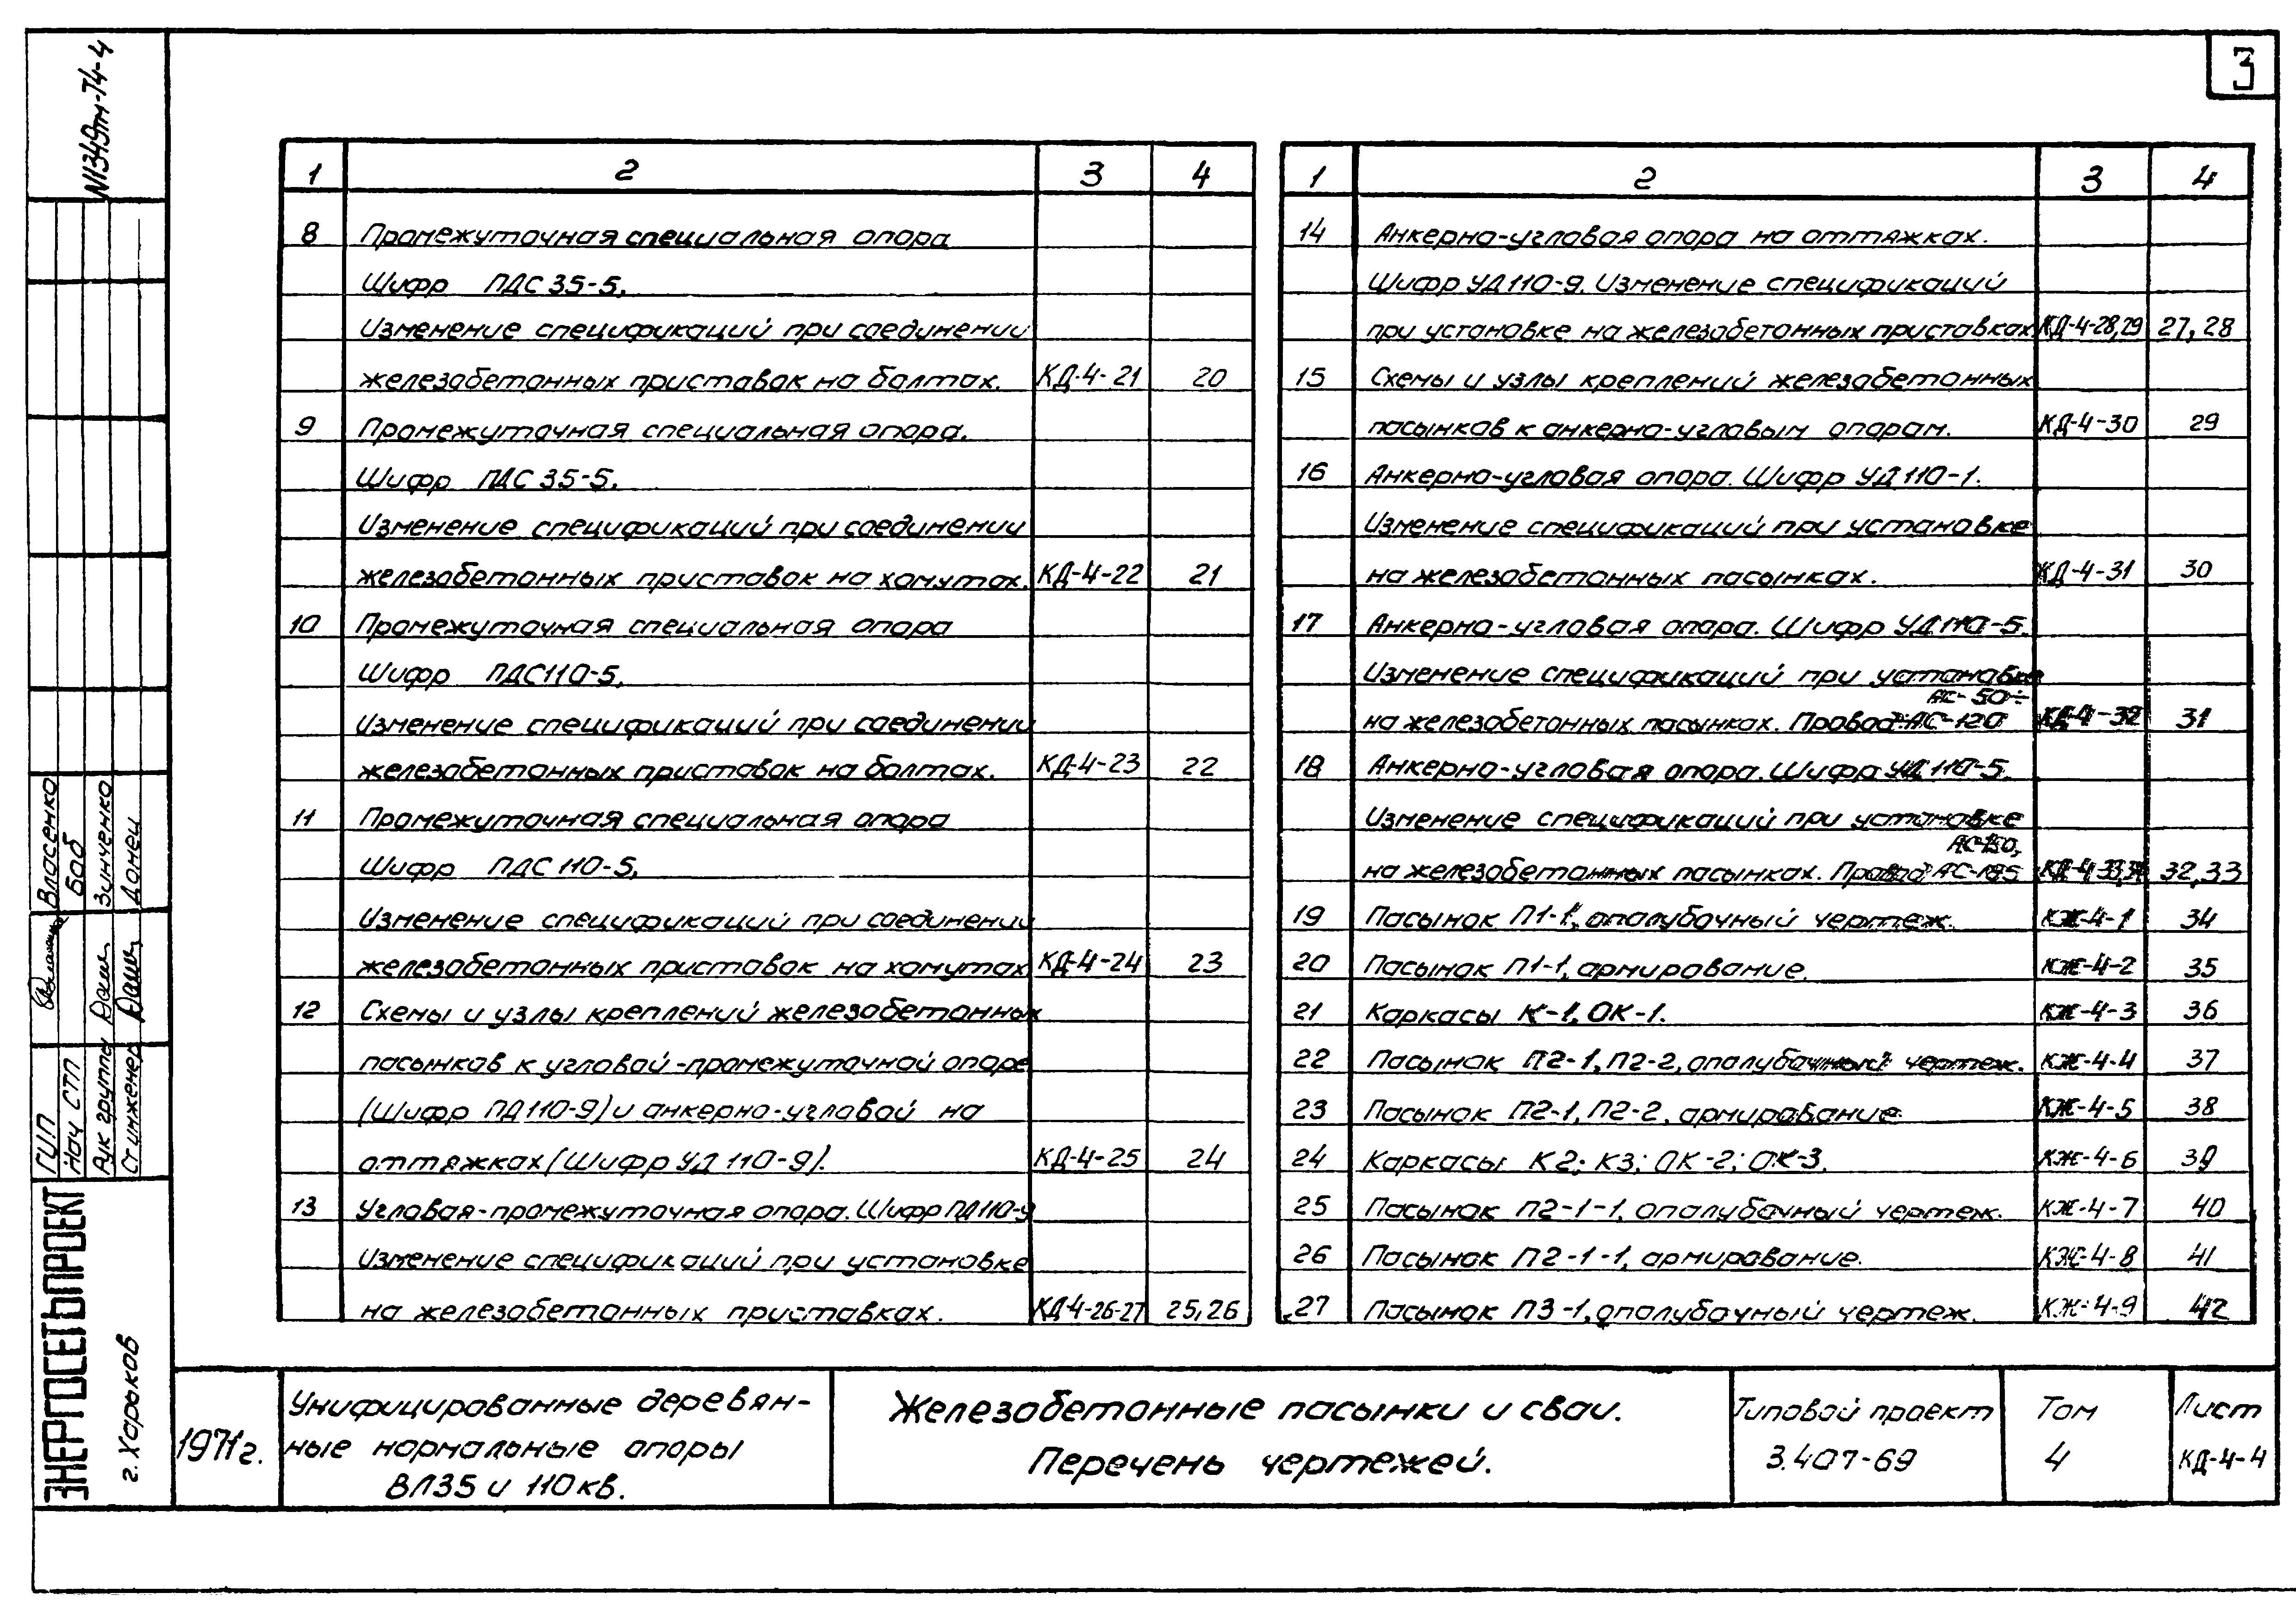 3
N1349тм-Т4-4
1 2 3 4
8 Промежуточная специальная опора
Шифр ПДС 35-5.
Изменение спецификаций при соединении
железобетонных приставок на болтах. КД-4-21 20
9 Промежуточная специальная опора.
Шифр ПДС 35-5.
Изменение спецификаций при соединении
железобетонных приставок на хомутах. КД-4-22 21
10 Промежуточная специальная опора
Шифр ПДС110-5.
Изменение спецификаций при соединении
железобетонных приставок на болтах. КД-4-23 22
11 Промежуточная специальная опора
Шифр ПДС 110-5.
Изменение спецификаций при соединении
железобетонных приставок на хомутах КД-4-24 23
12 Схемы и узлы креплений железобетонных
пасынков к угловой-промежуточной опоре
(Шифр ПД110-9) и анкерно-угловой на
оттяжках (Шифр УД 110-9). КД-4-25 24
13 Угловая-промежуточная опора. Шифр ПД110-9
Изменение спецификаций при установке
на железобетонных приставках. КД-4-26-27 25,26
1 2 3 4
14 Анкерно-угловая опора на оттяжках.
Шифр УД110-9. Изменение спецификаций
при установке на железобетонных приставках КД-4-28,29 27,28
15 Схемы и узлы креплений железобетонных
пасынков к анкерно-угловым опорам. КД-4-30 29
16 Анкерно-угловая опора. Шифр УД110-1.
Изменение спецификаций при установке
на железобетонных пасынках. КД-4-31 30
17 Анкерно-угловая опора. Шифр УД110-5.
Изменение спецификаций при установке
АС-50÷
на железобетонных пасынках. Провод АС-120 КД-4-32 31
18 Анкерно-угловая опора. Шифр УД 110-5.
Изменение спецификаций при установке
АС-150,
на железобетонных пасынках. Провод АС-185 КД-4-33,34 32,33
19 Пасынок П1-1, опалубочный чертеж. КЖ-4-1 34
20 Пасынок П1-1, армирование. КЖ-4-2 35
21 Каркасы К-1, ОК-1. КЖ-4-3 36
22 Пасынок П2-1, П2-2, опалубочный чертеж. КЖ-4-4 37
23 Пасынок П2-1, П2-2, армирование. КЖ-4-5 38
24 Каркасы К2; К3; ОК-2; ОК-3. КЖ-4-6 39
25 Пасынок П2-1-1, опалубочный чертеж. КЖ-4-7 40
26 Пасынок П2-1-1, армирование. КЖ-4-8 41
27 Пасынок П3-1, опалубочный чертеж. КЖ-4-9 42
ГИП Власенко
Нач СТП Боб
Рук группы Зинченко
Ст инженер Донец
ЭНЕРГОСЕТЬПРОЕКТ
г. Харьков
1971г.
Унифицированные деревян-
ные нормальные опоры
ВЛ35 и 110кв.
Железобетонные пасынки и сваи.
Перечень чертежей.
Типовой проект
3.407-69
Том
4
Лист
КД-4-4